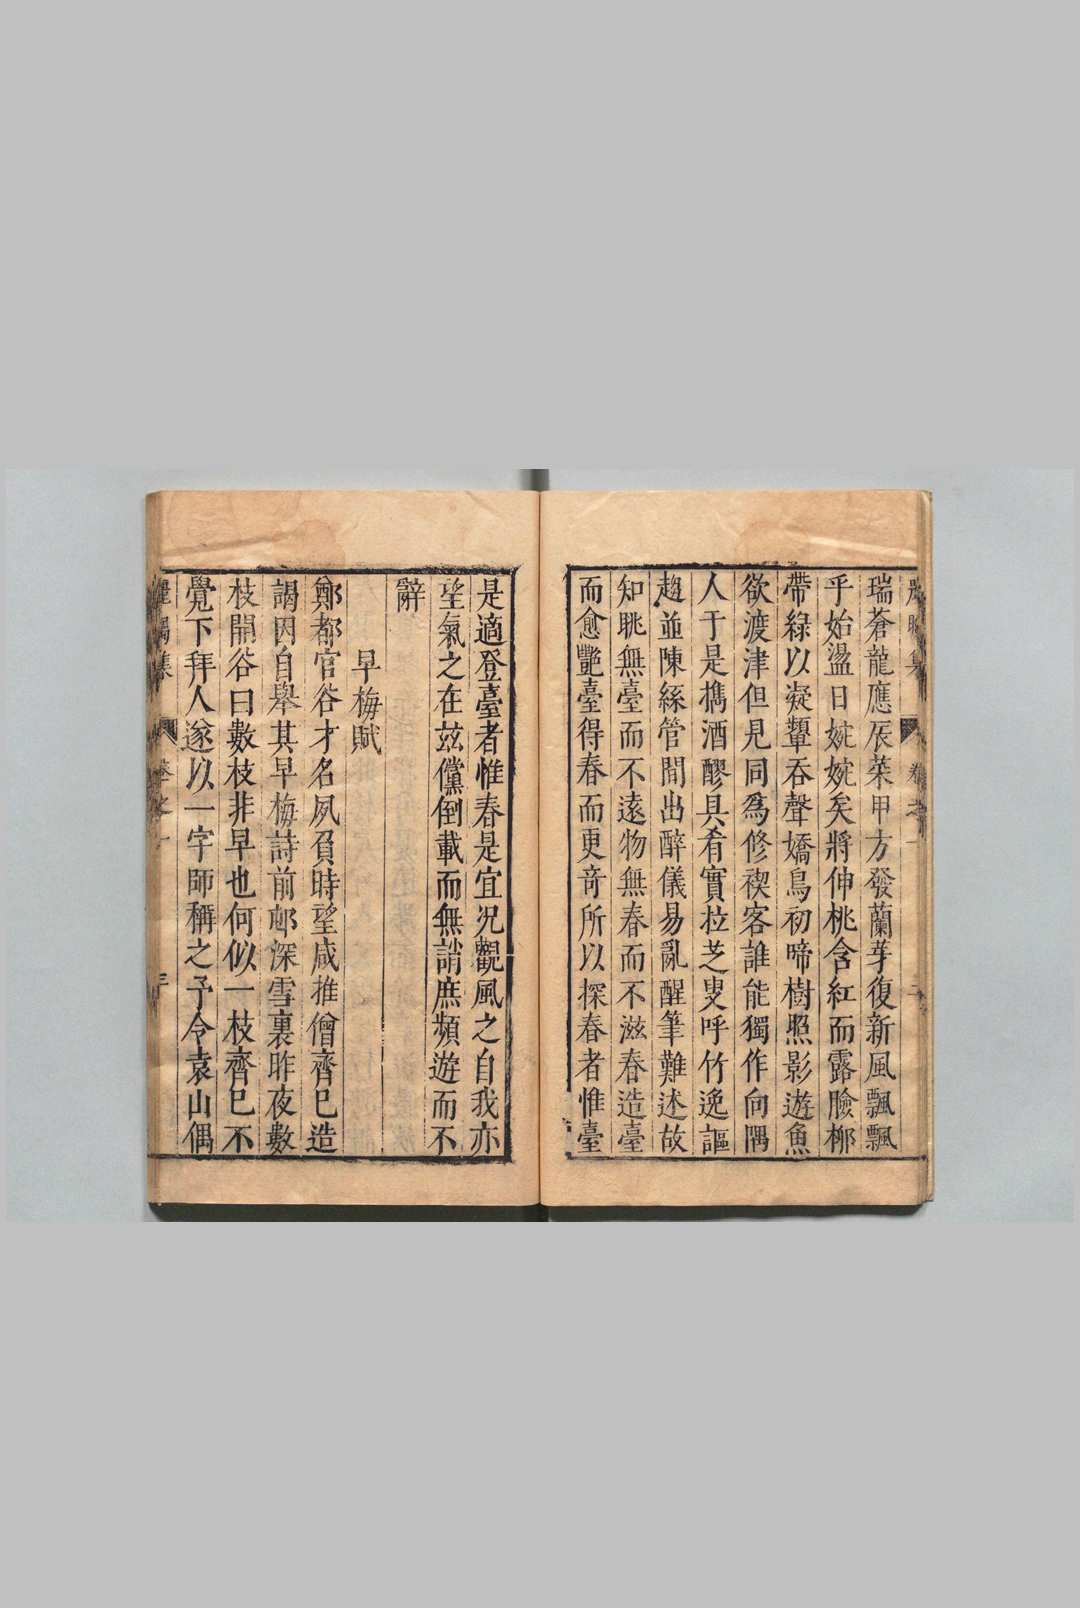 瑞蒼龍應辰菜甲方發蘭芽復新風飄飄
乎始盪日婉婉矣將伸桃含紅而露臉桺
帶綠以凝顰吞聲嬌鳥初啼樹照影遊魚
欲渡津但見同為修禊客誰能獨作向隅
人于是攜酒醪具肴實拉芝叟呼竹逸謳
趨並陳絲管間出醉儀易亂醒筆難述故
知眺無臺而不遠物無春而不滋春造臺
而愈艷臺得春而更奇所以探春者惟臺
是適登臺者惟春是宜況觀風之自我亦
望氣之在茲儻倒載而無誚庶頻遊而不
辭
早梅賦
鄭都官谷才名夙負時望咸推僧齊巳造
謁因自舉其早梅詩前邨深雪裏昨夜數
枝開谷曰數枝非早也何似一枝齊巳不
覺下拜人遂以一字師稱之予令袁山偶
集 卷之一 三